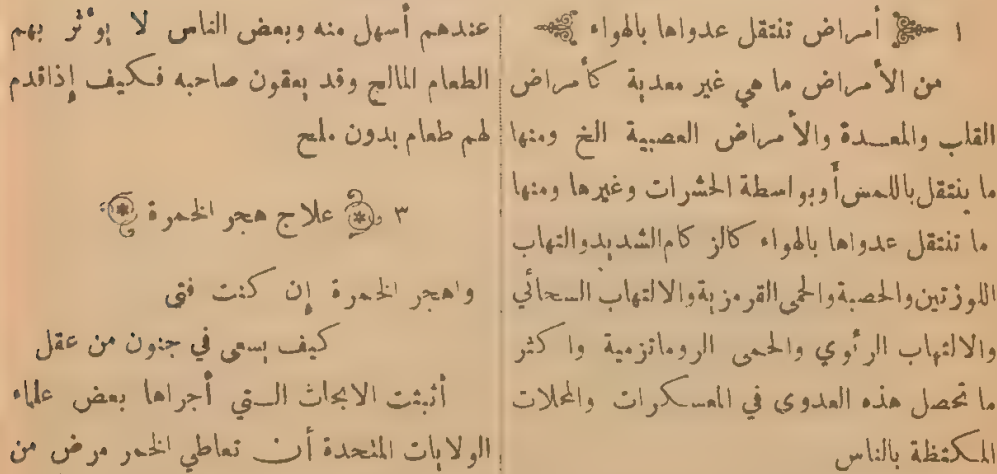 ١ أمراض تنتقل عدواها بالهواء
من الأمراض ما هي غير معدية كأمراض
القلب والمعدة والأمراض العصبية الخ ومنها
ما ينتقل باللمس أو بواسطة الحشرات وغيرها ومنها
ما تنتقل عدواها بالهواء كالزكام الشديد والتهاب
اللوزتين والحصبة والحمى القرمزية والالتهاب السحائي
والالتهاب الرئوي والحمى الروماتزمية واكثر
ما تحصل هذه العدوى في المعسكرات والمحلات
المكتظة بالناس
عندهم أسهل منه وبعض الناس لا يوءثر بهم
الطعام المالح وقد يمقون صاحبه فكيف إذاقدم
لهم طعام بدون ملح
٣ علاج هجر الخمرة
واهجر الخمرة إن كنت فتى
كيف يسعى في جنون من عقل
أثبتت الابحاث التي أجراها بعض علماء
الولايات المتحدة أن تعاطي الخمر مرض من